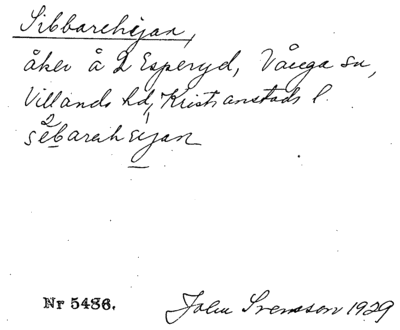 Sibbarehejan,
åker å 2 Esperyd, Vånga sn,
Villands hd, Kristianstads l.
sebarahejan
Nr 5486.
John Svensson 1929